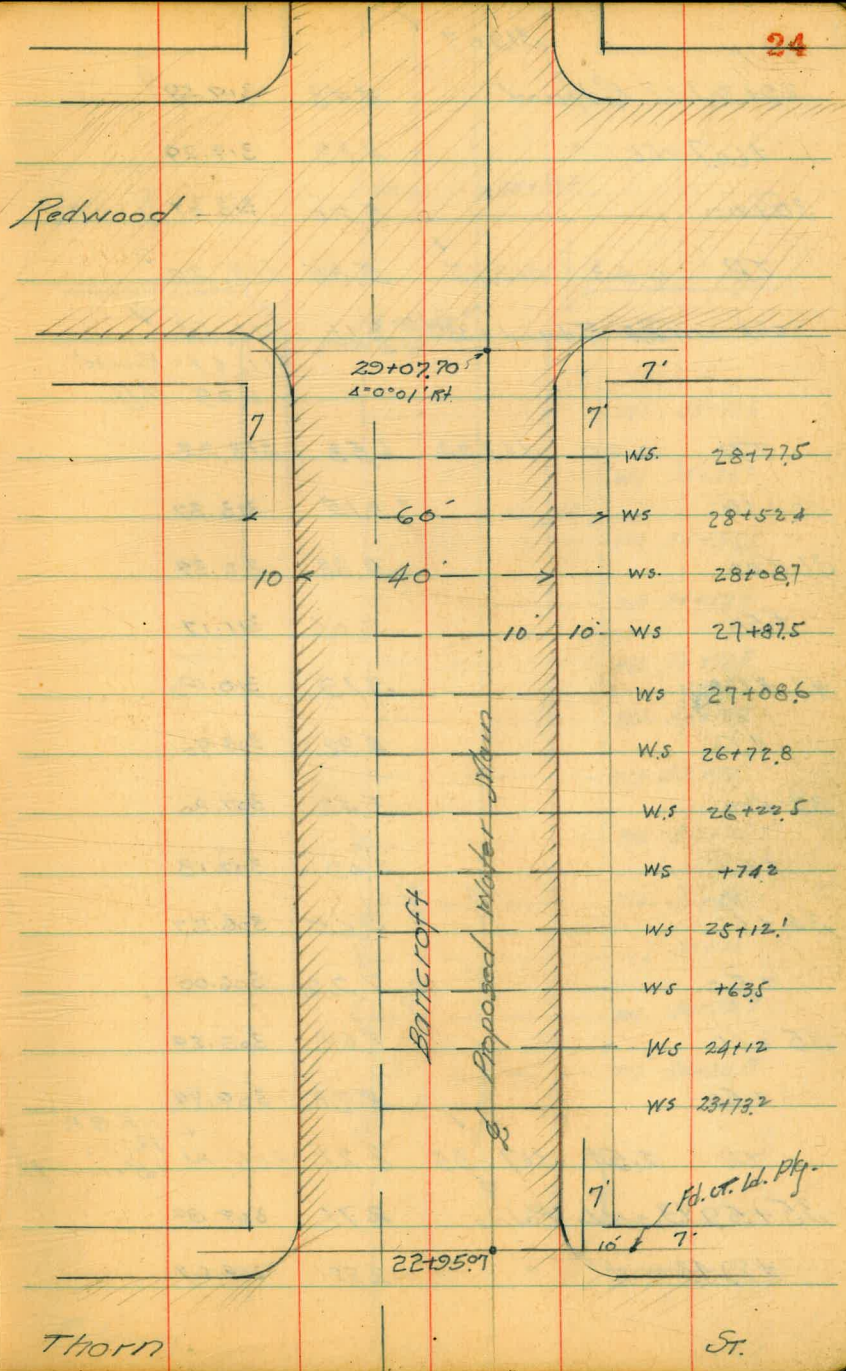 24
Redwood
29+07.70
Δ=0°01' Rt.
7'
7
7'
WS. 28+77.5
60' WS 28+52.4
10 40' WS. 28+08.7
10' 10' WS 27+87.5
WS 27+08.6
W.S 26+72.8
W.S 26+22.5
WS +74.2
WS 25+12.1
WS +63.5
WS 24+12
WS 23+73.2
Bancroft
℄ Proposed Water Main
7' Fd. Ld. Plg.
10' 7'
22+95.07
Thorn St.